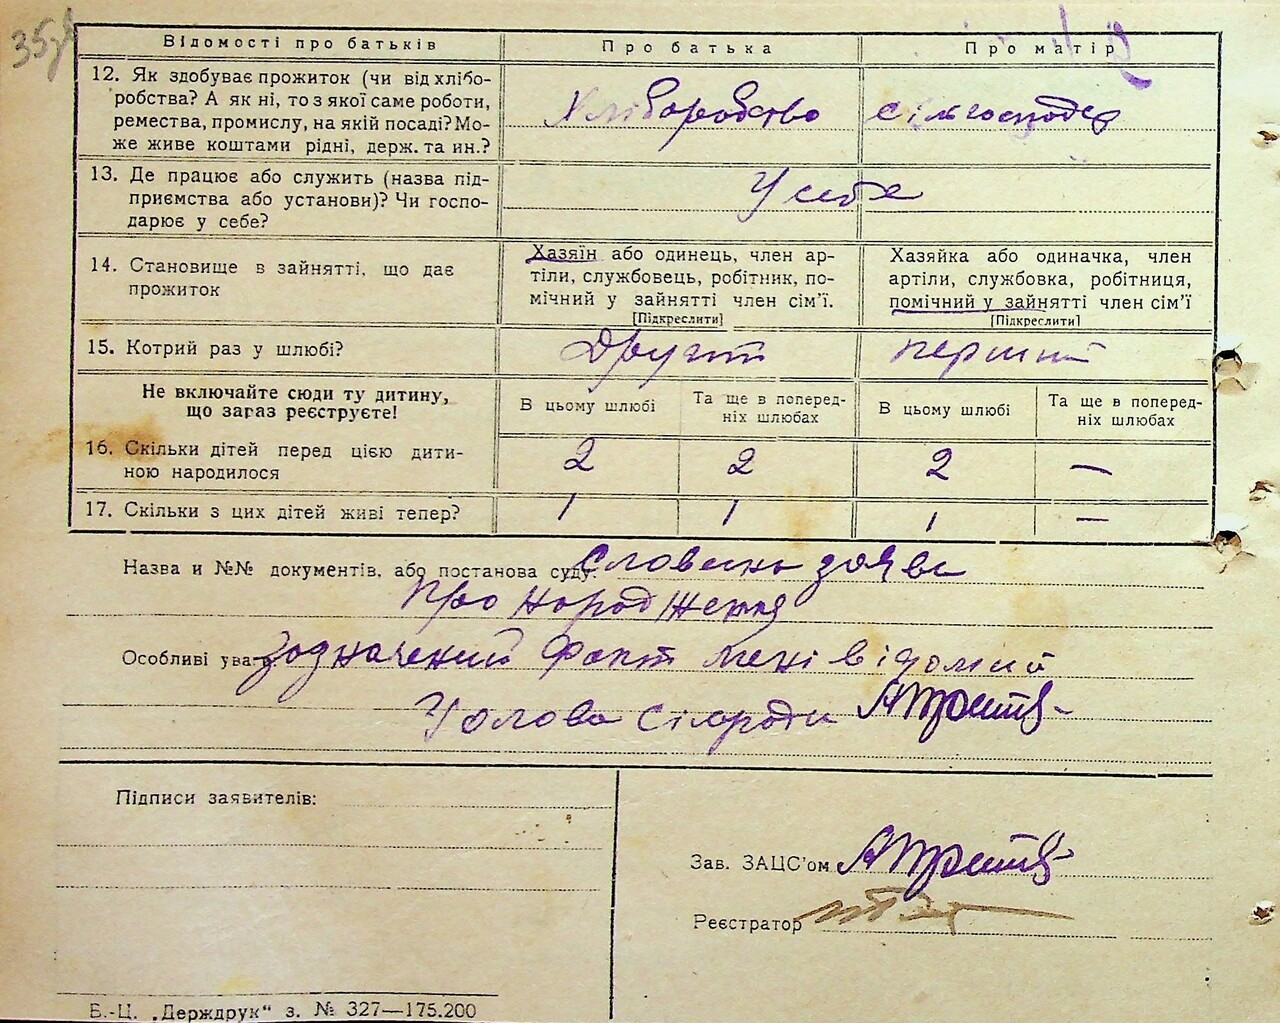 35
Відомості про батьків
Про батька
Про матір
12. Як здобуває прожиток (чи від хлібо-
робства? А як ні, то з якої саме роботи,
ремества, промислу, на якій посаді? Мо-
же живе коштами рідні, держ. та ин.?
Хліборобство
сільгосподар
13. Де працює або служить (назва під-
приємства або установи)? Чи госпо-
дарює у себе?
У себе
14. Становище в зайнятті, що дає
прожиток
Хазяїн або одинець, член ар-
тіли, службовець, робітник, по-
мічний у зайнятті член сім’ї.
[Підкреслити]
Хазяйка або одиначка, член
артіли, службовка, робітниця,
помічний у зайнятті член сім’ї
[Підкреслити]
15. Котрий раз у шлюбі?
Другий
перший
Не включайте сюди ту дитину,
що зараз реєструєте!
В цьому шлюбі
Та ще в поперед-
ніх шлюбах
В цьому шлюбі
Та ще в поперед-
ніх шлюбах
16. Скільки дітей перед цією дити-
ною народилося
2
2
2
—
17. Скільки з цих дітей живі тепер?
1
1
1
—
Назва и №№ документів, або постанова суду:
Словесна заява
про народження
Особливі уваги
Зазначений факт мені відомий
Голова сільради
Підписи заявителів:
Зав. ЗАЦС’ом
Реєстратор
Б.-Ц. „Держдрук“ з. № 327—175.200